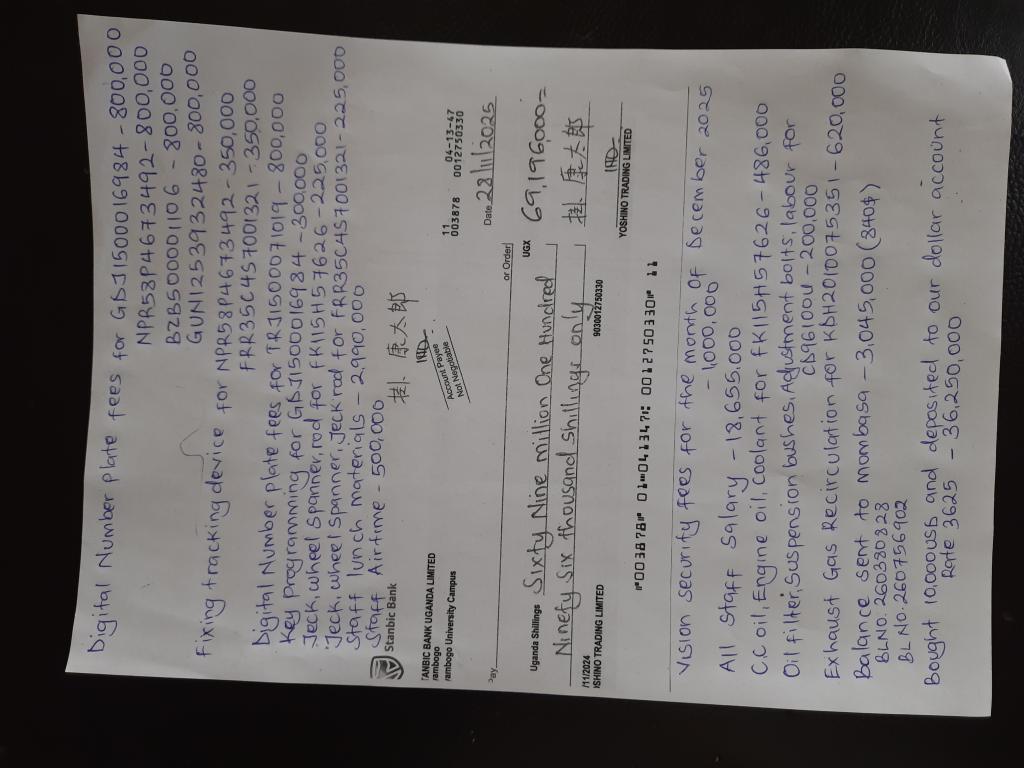 Digital Number plate fees for GDJ1500016984 - 800,000
NPR58P4673492 - 800,000
BZB500001106 - 800,000
GUN1253932480 - 800,000
Fixing tracking device for NPR58P4673492 - 350,000
FRR35C4S7001321 - 350,000
Digital Number plate fees for TRJ1500071019 - 800,000
Key Programming for GDJ1500016984 - 300,000
Jeck, wheel spanner, rod for FK115H57626 - 225,000
Jeck, wheel spanner, Jeck rod for FRR35C4S7001321 - 225,000
Staff lunch materials - 2,990,000
Staff Airtime - 500,000
掛 康太郎
Stanbic Bank
Account Payee
Not Negotiable
11 04-13-47
003878 0012750330
TANBIC BANK UGANDA LIMITED
yambogo
yambogo University Campus
Date 28/11/2025
Pay
or Order
Uganda Shillings Sixty Nine million One Hundred
UGX 69,196,000=
Ninety Six thousand Shillings only
掛 康太郎
/11/2024
ISHINO TRADING LIMITED
9030012750330
YOSHINO TRADING LIMITED
⑈003878⑈ 01⑉041347⑆ 0012750330⑈ 11
Vision security fees for the month of December 2025
- 1,000,000
All Staff Salary - 18,655,000
C.C oil, Engine oil, Coolant for FK115H57626 - 486,000
Oil filter, Suspension bushes, Adjustment bolts, labour for
CD96100U - 200,000
Exhaust Gas Recirculation for KDH2010075351 - 620,000
Balance sent to mombasa - 3,045,000 (840$)
BLNO: 260330828
BL NO: 260756902
Bought 10,000US$ and deposited to our dollar account
Rate 3625 - 36,250,000